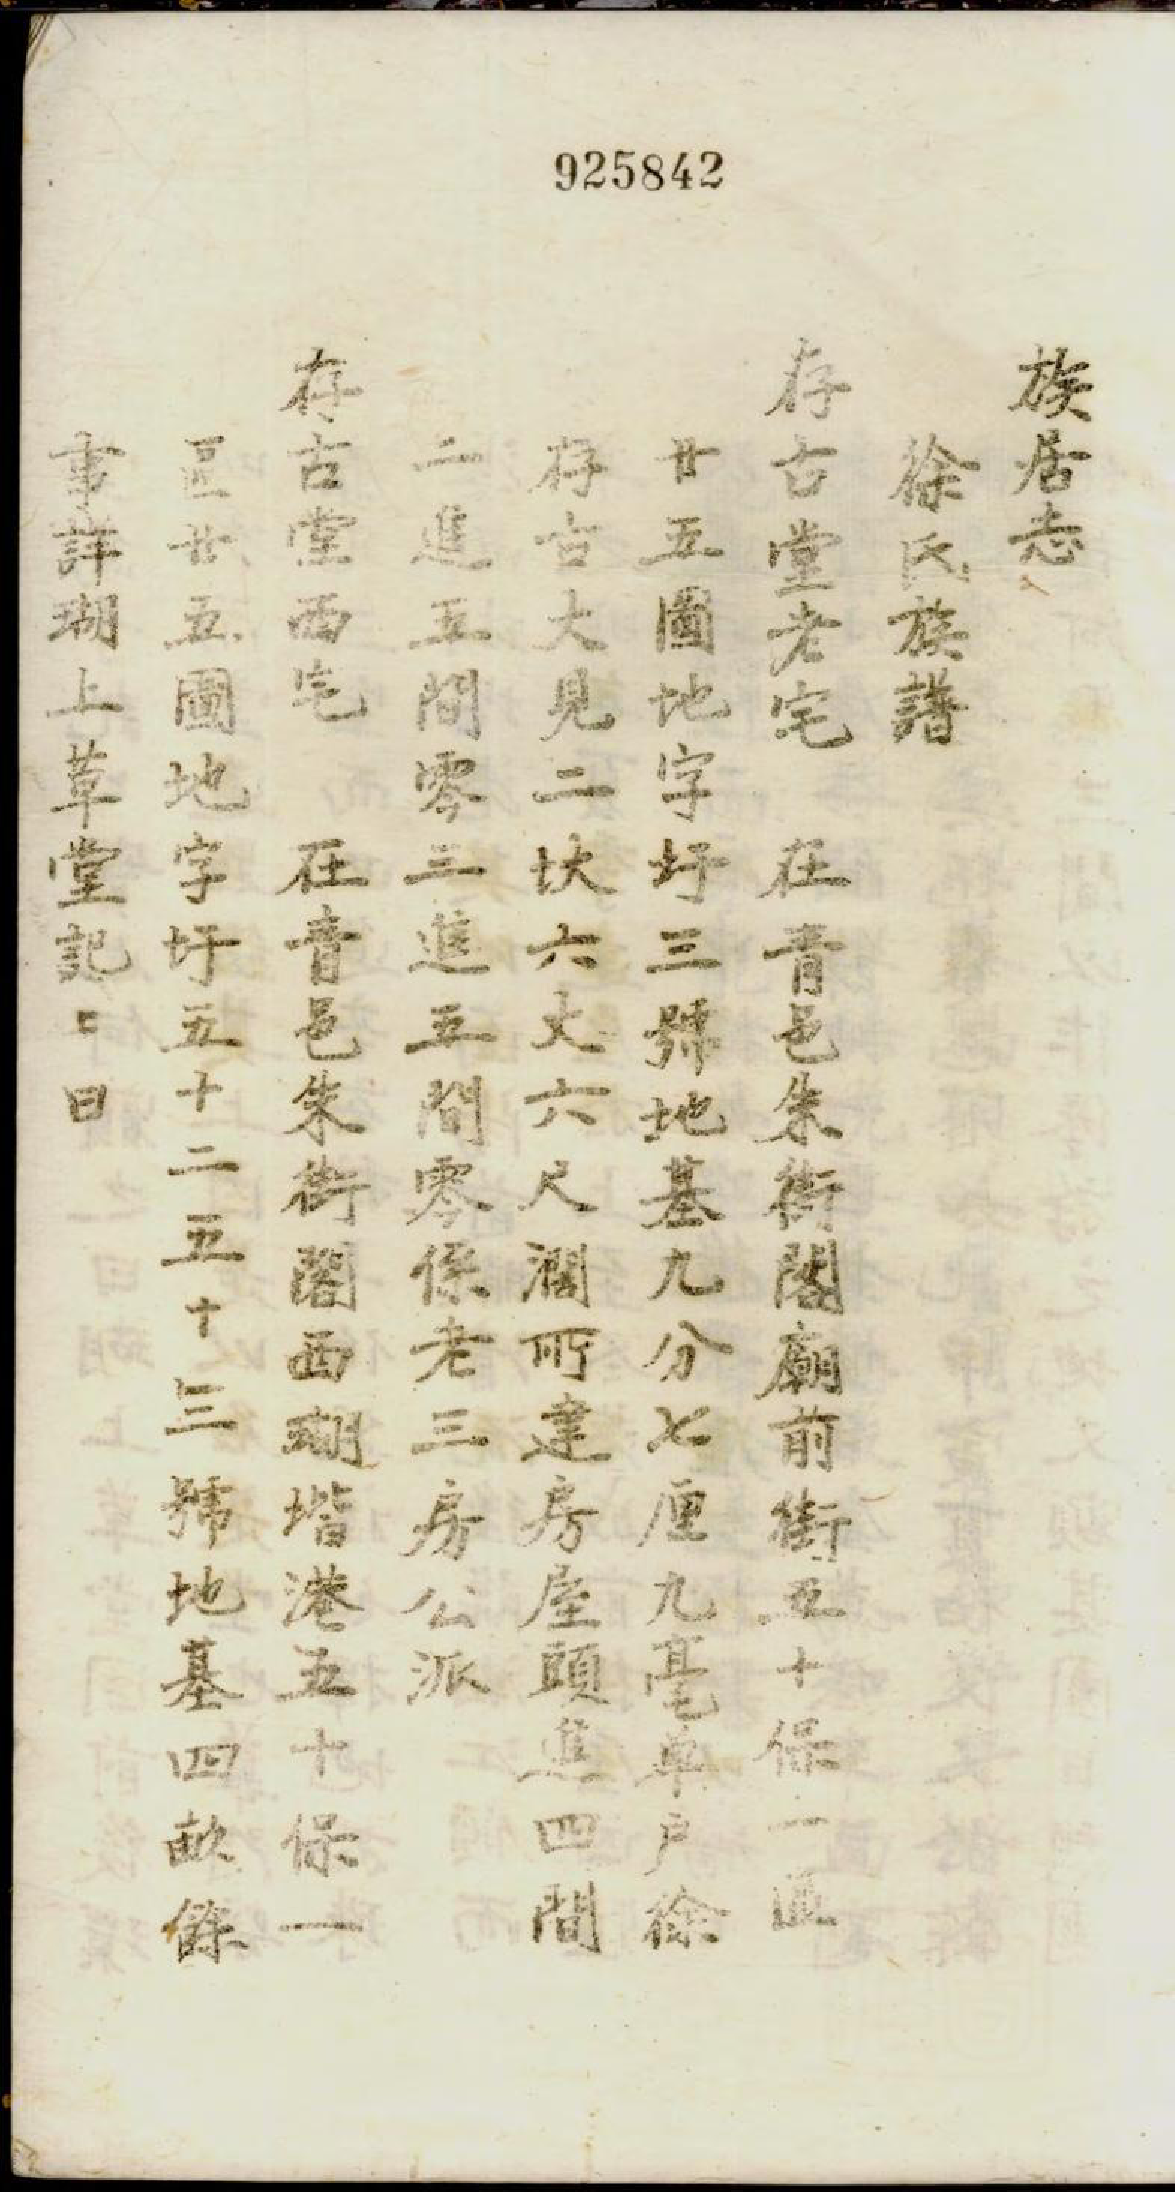 925842
族居志
徐氏族譜
存古堂老宅　在青邑朱街閣廟前街五十保一區
廿五圖地字圩三號地基九分七厘九毫單户徐
存古大見二㘰六丈六尺濶所建房屋頭進四間
二進五間零三進五間零係老三房公派
存古堂西宅　在青邑朱街閣西瑚堦港五十保一
區廿五圖地字圩五十二五十三號地基四畝餘
事詳瑚上草堂記〻曰